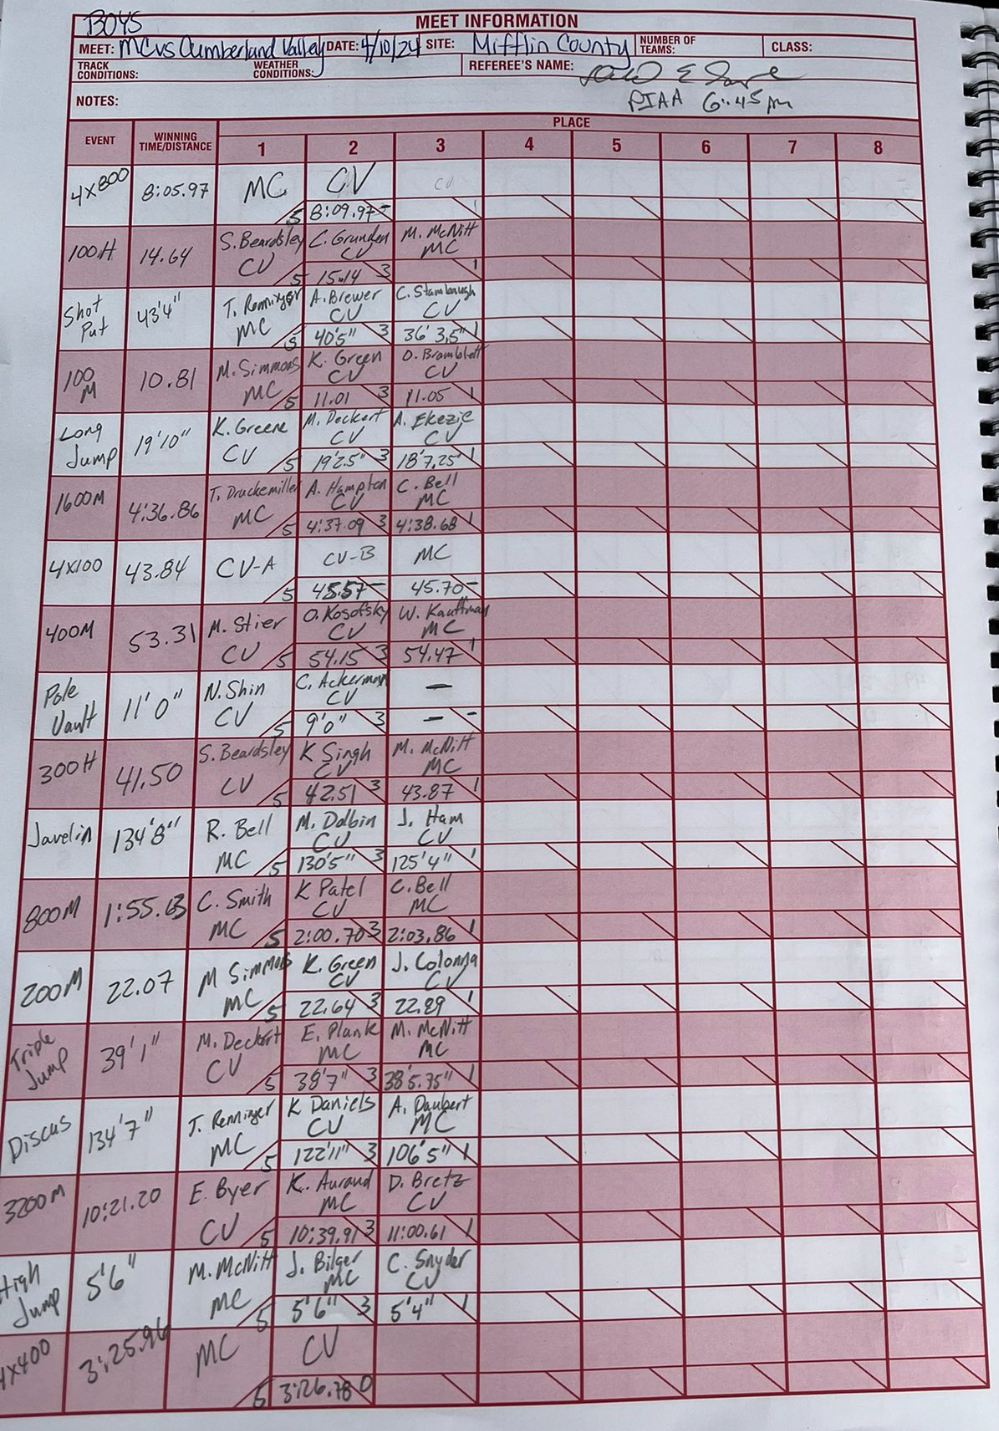 BOYS
MEET INFORMATION
MEET: MC vs Cumberland Valley DATE: 4/10/24 SITE: Mifflin County NUMBER OF TEAMS: CLASS:
TRACK CONDITIONS: WEATHER CONDITIONS: REFEREE'S NAME:
PIAA 6:45 PM
NOTES:
EVENT WINNING TIME/DISTANCE PLACE
1 2 3 4 5 6 7 8
4X800 8:05.97 MC CV CV
5 8:09.97 - 1
100H 14.64 S. Beardsley C. Grunden M. McNitt
CV CV MC
5 15.14 3 1
Shot Put 43'4" T. Renninger A. Brewer C. Stambaugh
MC CV CV
5 40'5" 3 36' 3.5" 1
100 M 10.81 M. Simmons K. Green O. Bramblett
MC CV CV
5 11.01 3 11.05 1
Long Jump 19'10" K. Greene M. Deckert A. Ekezie
CV CV CV
5 19'2.5" 3 18'7.25" 1
1600M 4:36.86 T. Druckemiller A. Hampton C. Bell
MC CV MC
5 4:37.09 3 4:38.68 1
4X100 43.84 CV-A CV-B MC
5 45.57 - 45.70 -
400M 53.31 M. Stier O. Kosofsky W. Kauffman
CV CV MC
5 54.15 3 54.47 1
Pole Vault 11'0" N. Shin C. Ackerman -
CV CV
5 9'0" 3 - -
300H 41.50 S. Beardsley K Singh M. McNitt
CV CV MC
5 42.51 3 43.87 1
Javelin 134'8" R. Bell M. Dolbin J. Ham
MC CV CV
5 130'5" 3 125'4" 1
800M 1:55.63 C. Smith K Patel C. Bell
MC CV MC
5 2:00.70 3 2:03.86 1
200M 22.07 M Simmons K. Green J. Colonna
MC CV CV
5 22.64 3 22.89 1
Triple Jump 39'1" M. Deckert E. Plank M. McNitt
CV MC MC
5 38'7" 3 38'5.75" 1
Discus 134'7" T. Renninger K Daniels A. Daubert
MC CV MC
5 122'11" 3 106'5" 1
3200M 10:21.20 E. Byer K. Aurand D. Bretz
CV MC CV
5 10:39.91 3 11:00.61 1
High Jump 5'6" M. McNitt J. Bilger C. Snyder
MC MC CV
5 5'6" 3 5'4" 1
4X400 3:25.96 MC CV
5 3:26.78 0